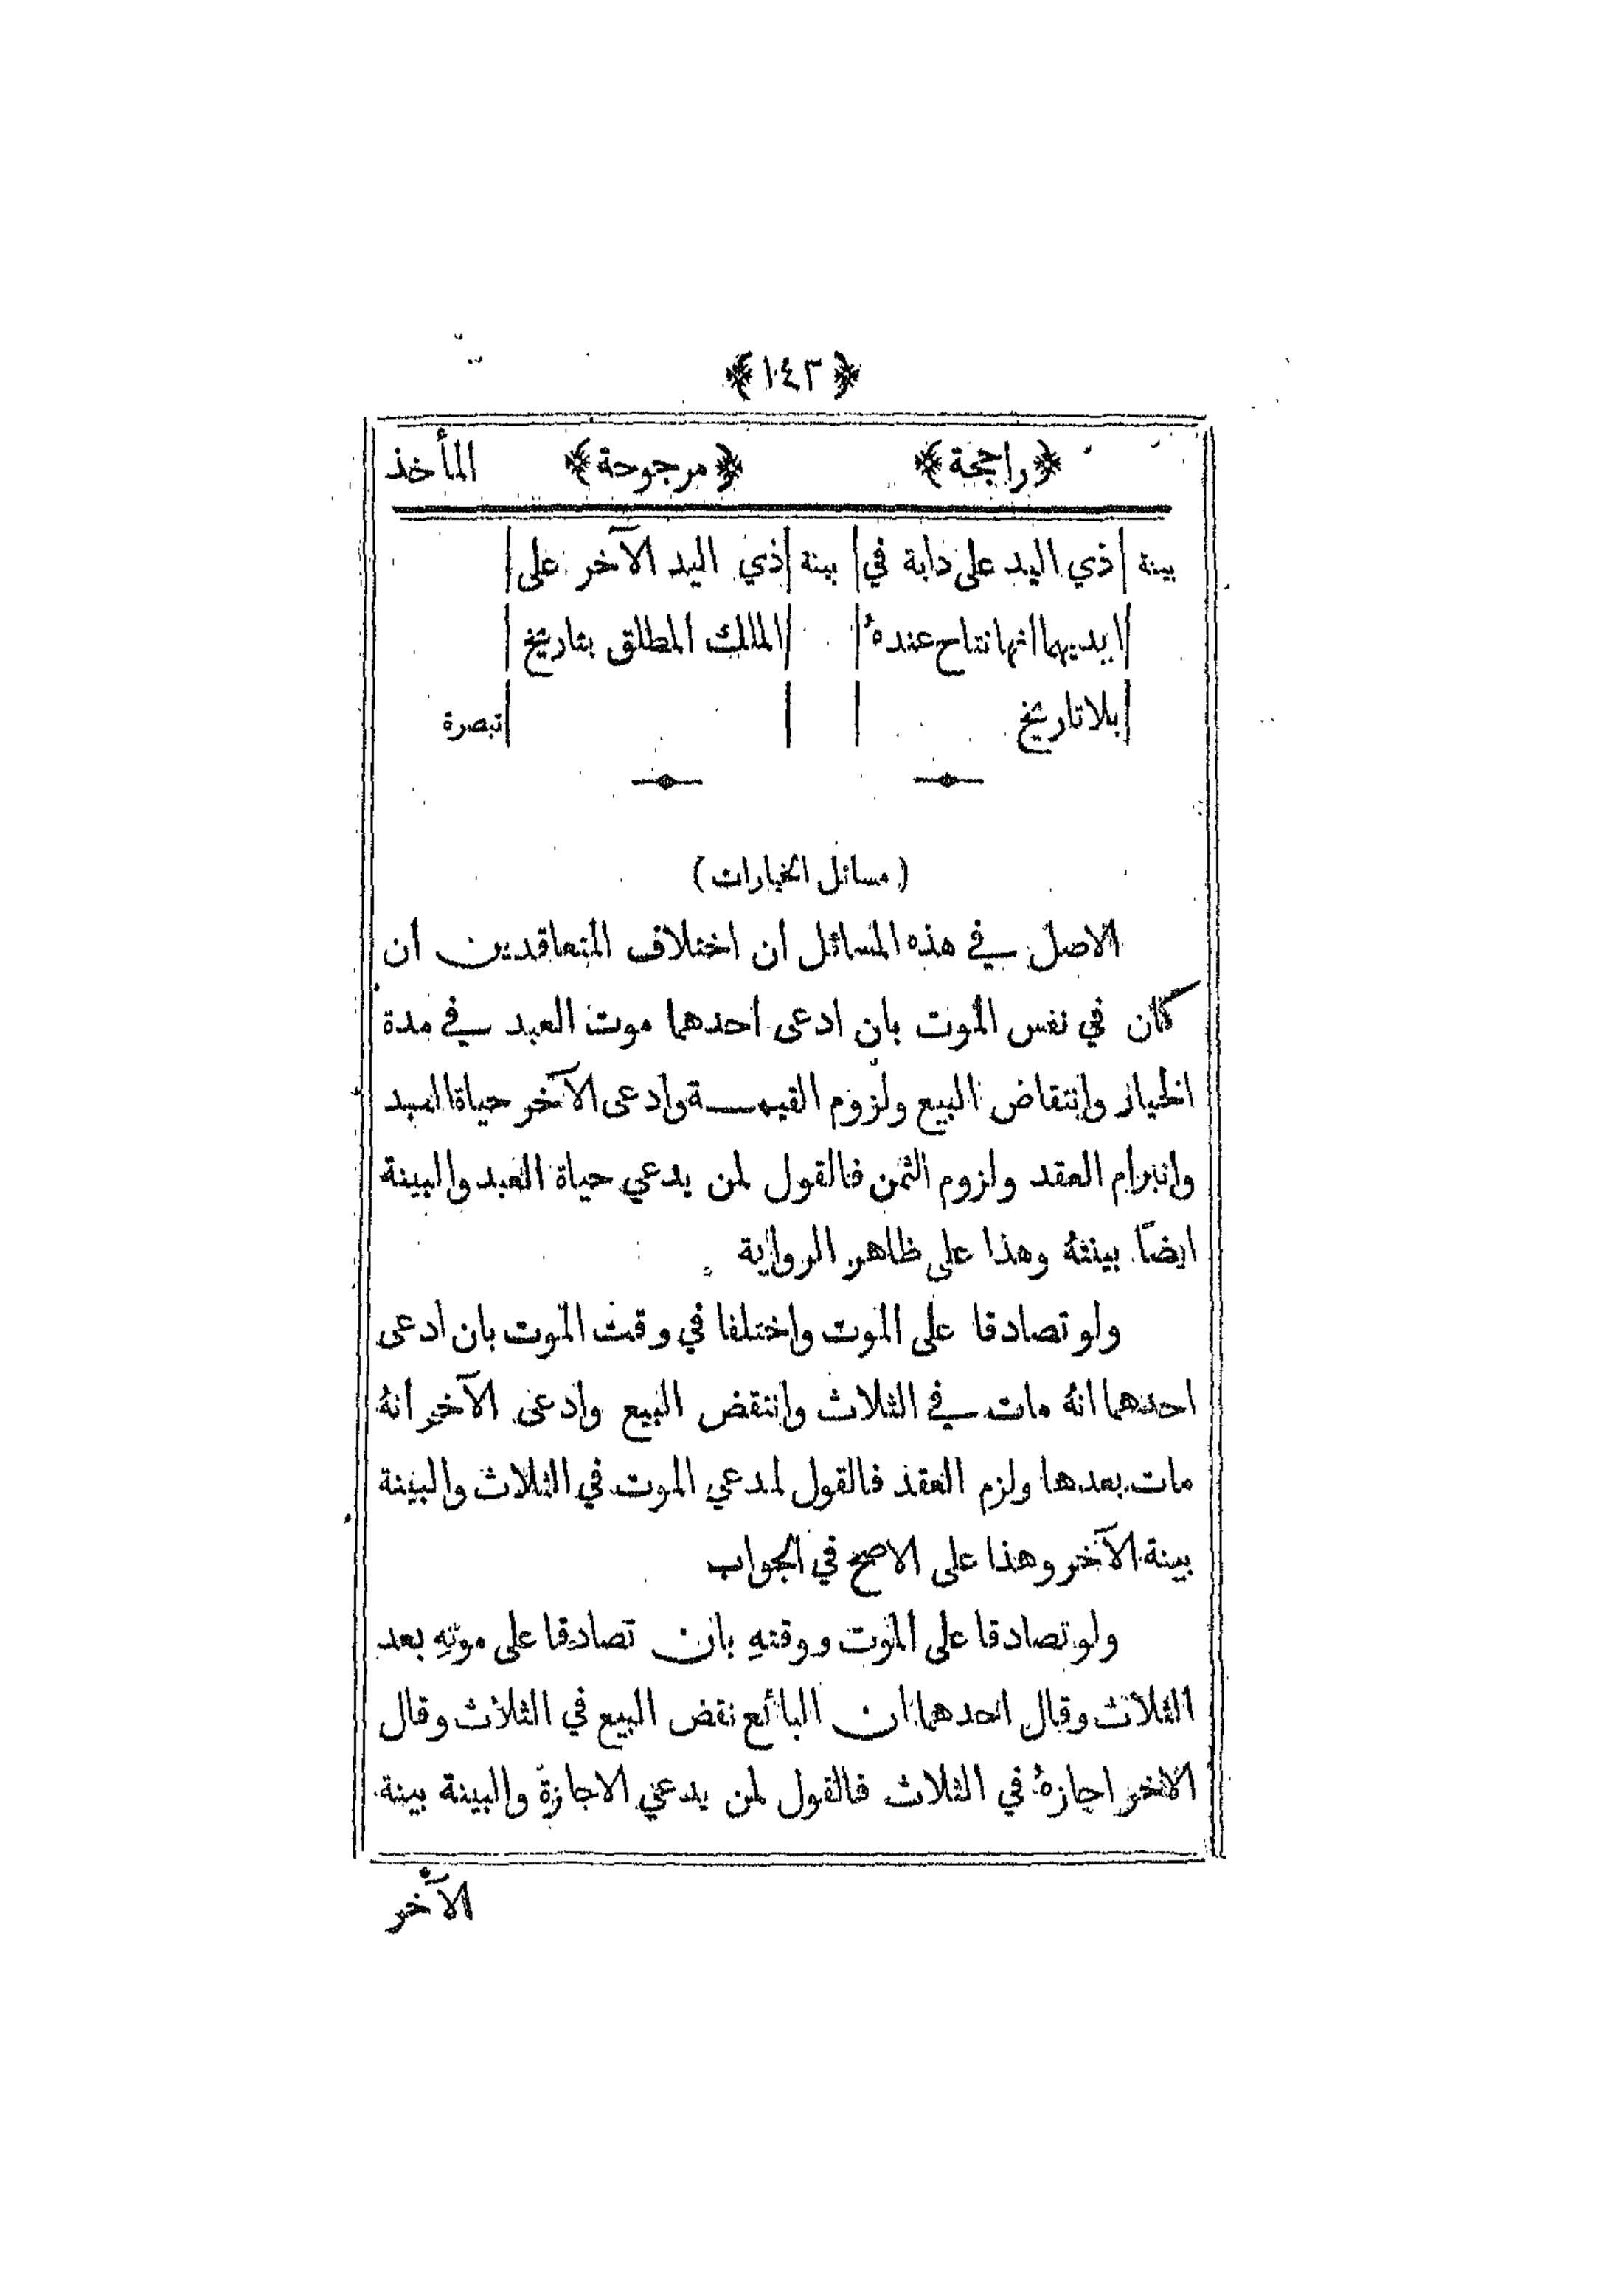 ﴿ ١٤٢ ﴾
﴿ راجحة ﴾ ﴿ مرجوحة ﴾ المأخذ
بينة | ذي اليد على دابة في | بينة | ذي اليد الآخر على |
| ايديهما انها نتاج عندهُ | | الملك المطلق بتاريخ |
| بلا تاريخ | | | تبصرة
( مسائل الخيارات )
الاصل في هذه المسائل ان اختلاف المتعاقدين ان
كان في نفس الموت بان ادعى احدهما موت العبد في مدة
الخيار وانتقاض البيع ولزوم القيمة وادعى الآخر حياة العبد
وانبرام العقد ولزوم الثمن فالقول لمن يدعي حياة العبد والبينة
ايضًا بينتهُ وهذا على ظاهر الرواية
ولو تصادقا على الموت واختلفا في وقت الموت بان ادعى
احدهما انهُ مات في الثلاث وانتقض البيع وادعى الآخر انهُ
مات بعدها ولزم العقد فالقول لمدعي الموت في الثلاث والبينة
بينة الآخر وهذا على الاصح في الجواب
ولو تصادقا على الموت ووقتهِ بان تصادقا على موتهِ بعد
الثلاث وقال احدهما ان البائع نقض البيع في الثلاث وقال
الاخر اجازهُ في الثلاث فالقول لمن يدعي الاجازة والبينة بينة
الآخر